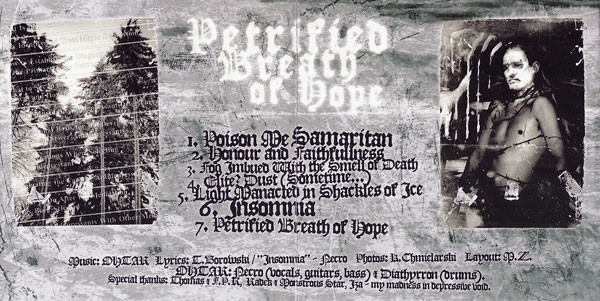 Petrified
Breath
of Hope
1. Poison Me Samaritan
2. Honour and Faithfullness
3. Fog Imbued With the Smell of Death
4. Elite? Dust (Sometime...)
5. Light Manacled in Shackles of Ice
6. Insomnia
7. Petrified Breath of Hope
Music: OHTAR Lyrics: T. Borowski / "Insomnia" - Necro Photos: K. Chmielarski Layout: M. Z.
OHTAR: Necro (vocals, guitars, bass) & Diathyrron (drums).
Special thanks: & F.V.K, Radek & Monstrous Star, Iza - my madness in depressive void.